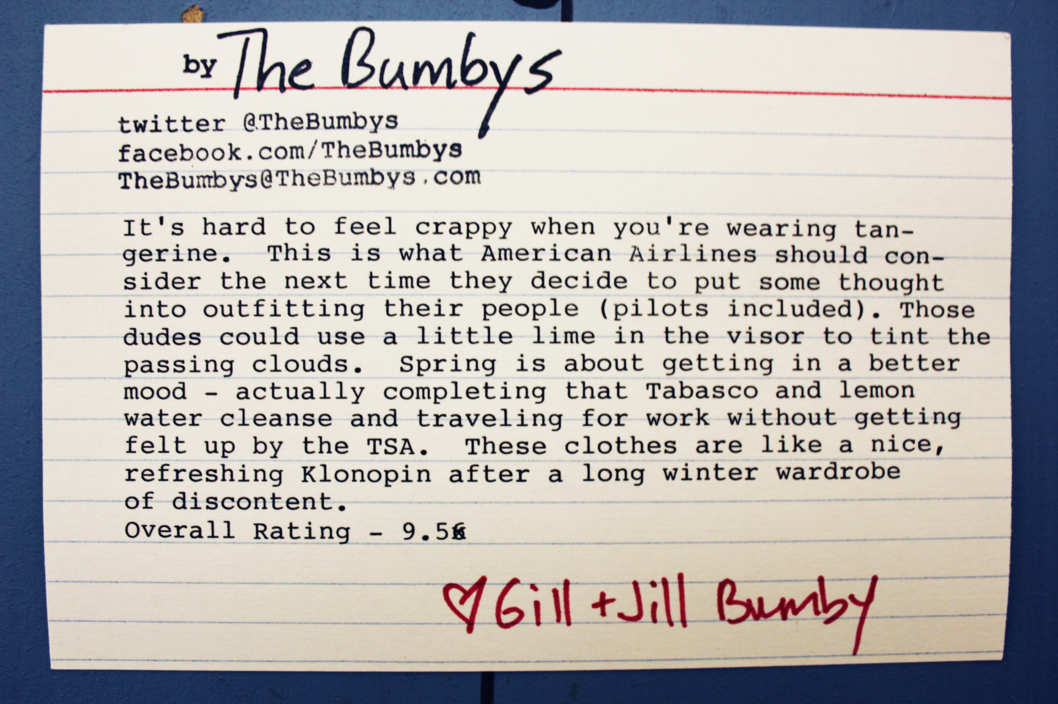 by The Bumbys
twitter @TheBumbys
facebook.com/TheBumbys
TheBumbys@TheBumbys.com
It's hard to feel crappy when you're wearing tan-
gerine.  This is what American Airlines should con-
sider the next time they decide to put some thought
into outfitting their people (pilots included). Those
dudes could use a little lime in the visor to tint the
passing clouds.  Spring is about getting in a better
mood - actually completing that Tabasco and lemon
water cleanse and traveling for work without getting
felt up by the TSA.  These clothes are like a nice,
refreshing Klonopin after a long winter wardrobe
of discontent.
Overall Rating - 9.5
♡Gill + Jill Bumby